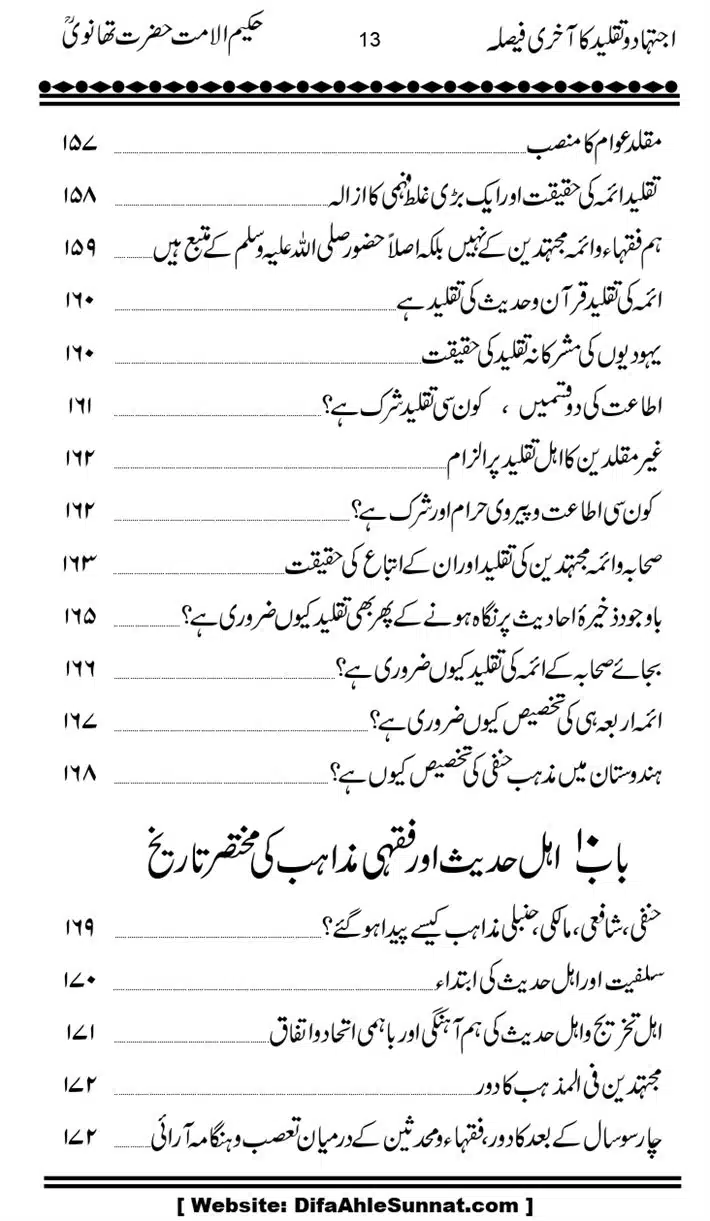 اجتہاد و تقلید کا آخری فیصلہ 13 حکیم الامت حضرت تھانویؒ
مقلد عوام کا منصب ۱۵۷
تقلید ائمہ کی حقیقت اور ایک بڑی غلط فہمی کا ازالہ ۱۵۸
ہم فقہاء و ائمہ مجتہدین کے نہیں بلکہ اصلاً حضور صلی اللہ علیہ وسلم کے متبع ہیں ۱۵۹
ائمہ کی تقلید قرآن و حدیث کی تقلید ہے ۱۶۰
یہودیوں کی مشرکانہ تقلید کی حقیقت ۱۶۰
اطاعت کی دو قسمیں ، کون سی تقلید شرک ہے؟ ۱۶۱
غیر مقلدین کا اہل تقلید پر الزام ۱۶۲
کون سی اطاعت و پیروی حرام اور شرک ہے؟ ۱۶۲
صحابہ و ائمہ مجتہدین کی تقلید اور ان کے اتباع کی حقیقت ۱۶۳
باوجود ذخیرۂ احادیث پر نگاہ ہونے کے پھر بھی تقلید کیوں ضروری ہے؟ ۱۶۵
بجائے صحابہ کے ائمہ کی تقلید کیوں ضروری ہے؟ ۱۶۶
ائمہ اربعہ ہی کی تخصیص کیوں ضروری ہے؟ ۱۶۷
ہندوستان میں مذہب حنفی کی تخصیص کیوں ہے؟ ۱۶۸
باب ۱۰ اہل حدیث اور فقہی مذاہب کی مختصر تاریخ
حنفی، شافعی، مالکی، حنبلی مذاہب کیسے پیدا ہو گئے؟ ۱۶۹
سلفیت اور اہل حدیث کی ابتداء ۱۷۰
اہل تخریج و اہل حدیث کی ہم آہنگی اور باہمی اتحاد و اتفاق ۱۷۱
مجتہدین فی المذہب کا دور ۱۷۲
چار سو سال کے بعد کا دور، فقہاء و محدثین کے درمیان تعصب و ہنگامہ آرائی ۱۷۲
[ Website: DifaAhleSunnat.com ]